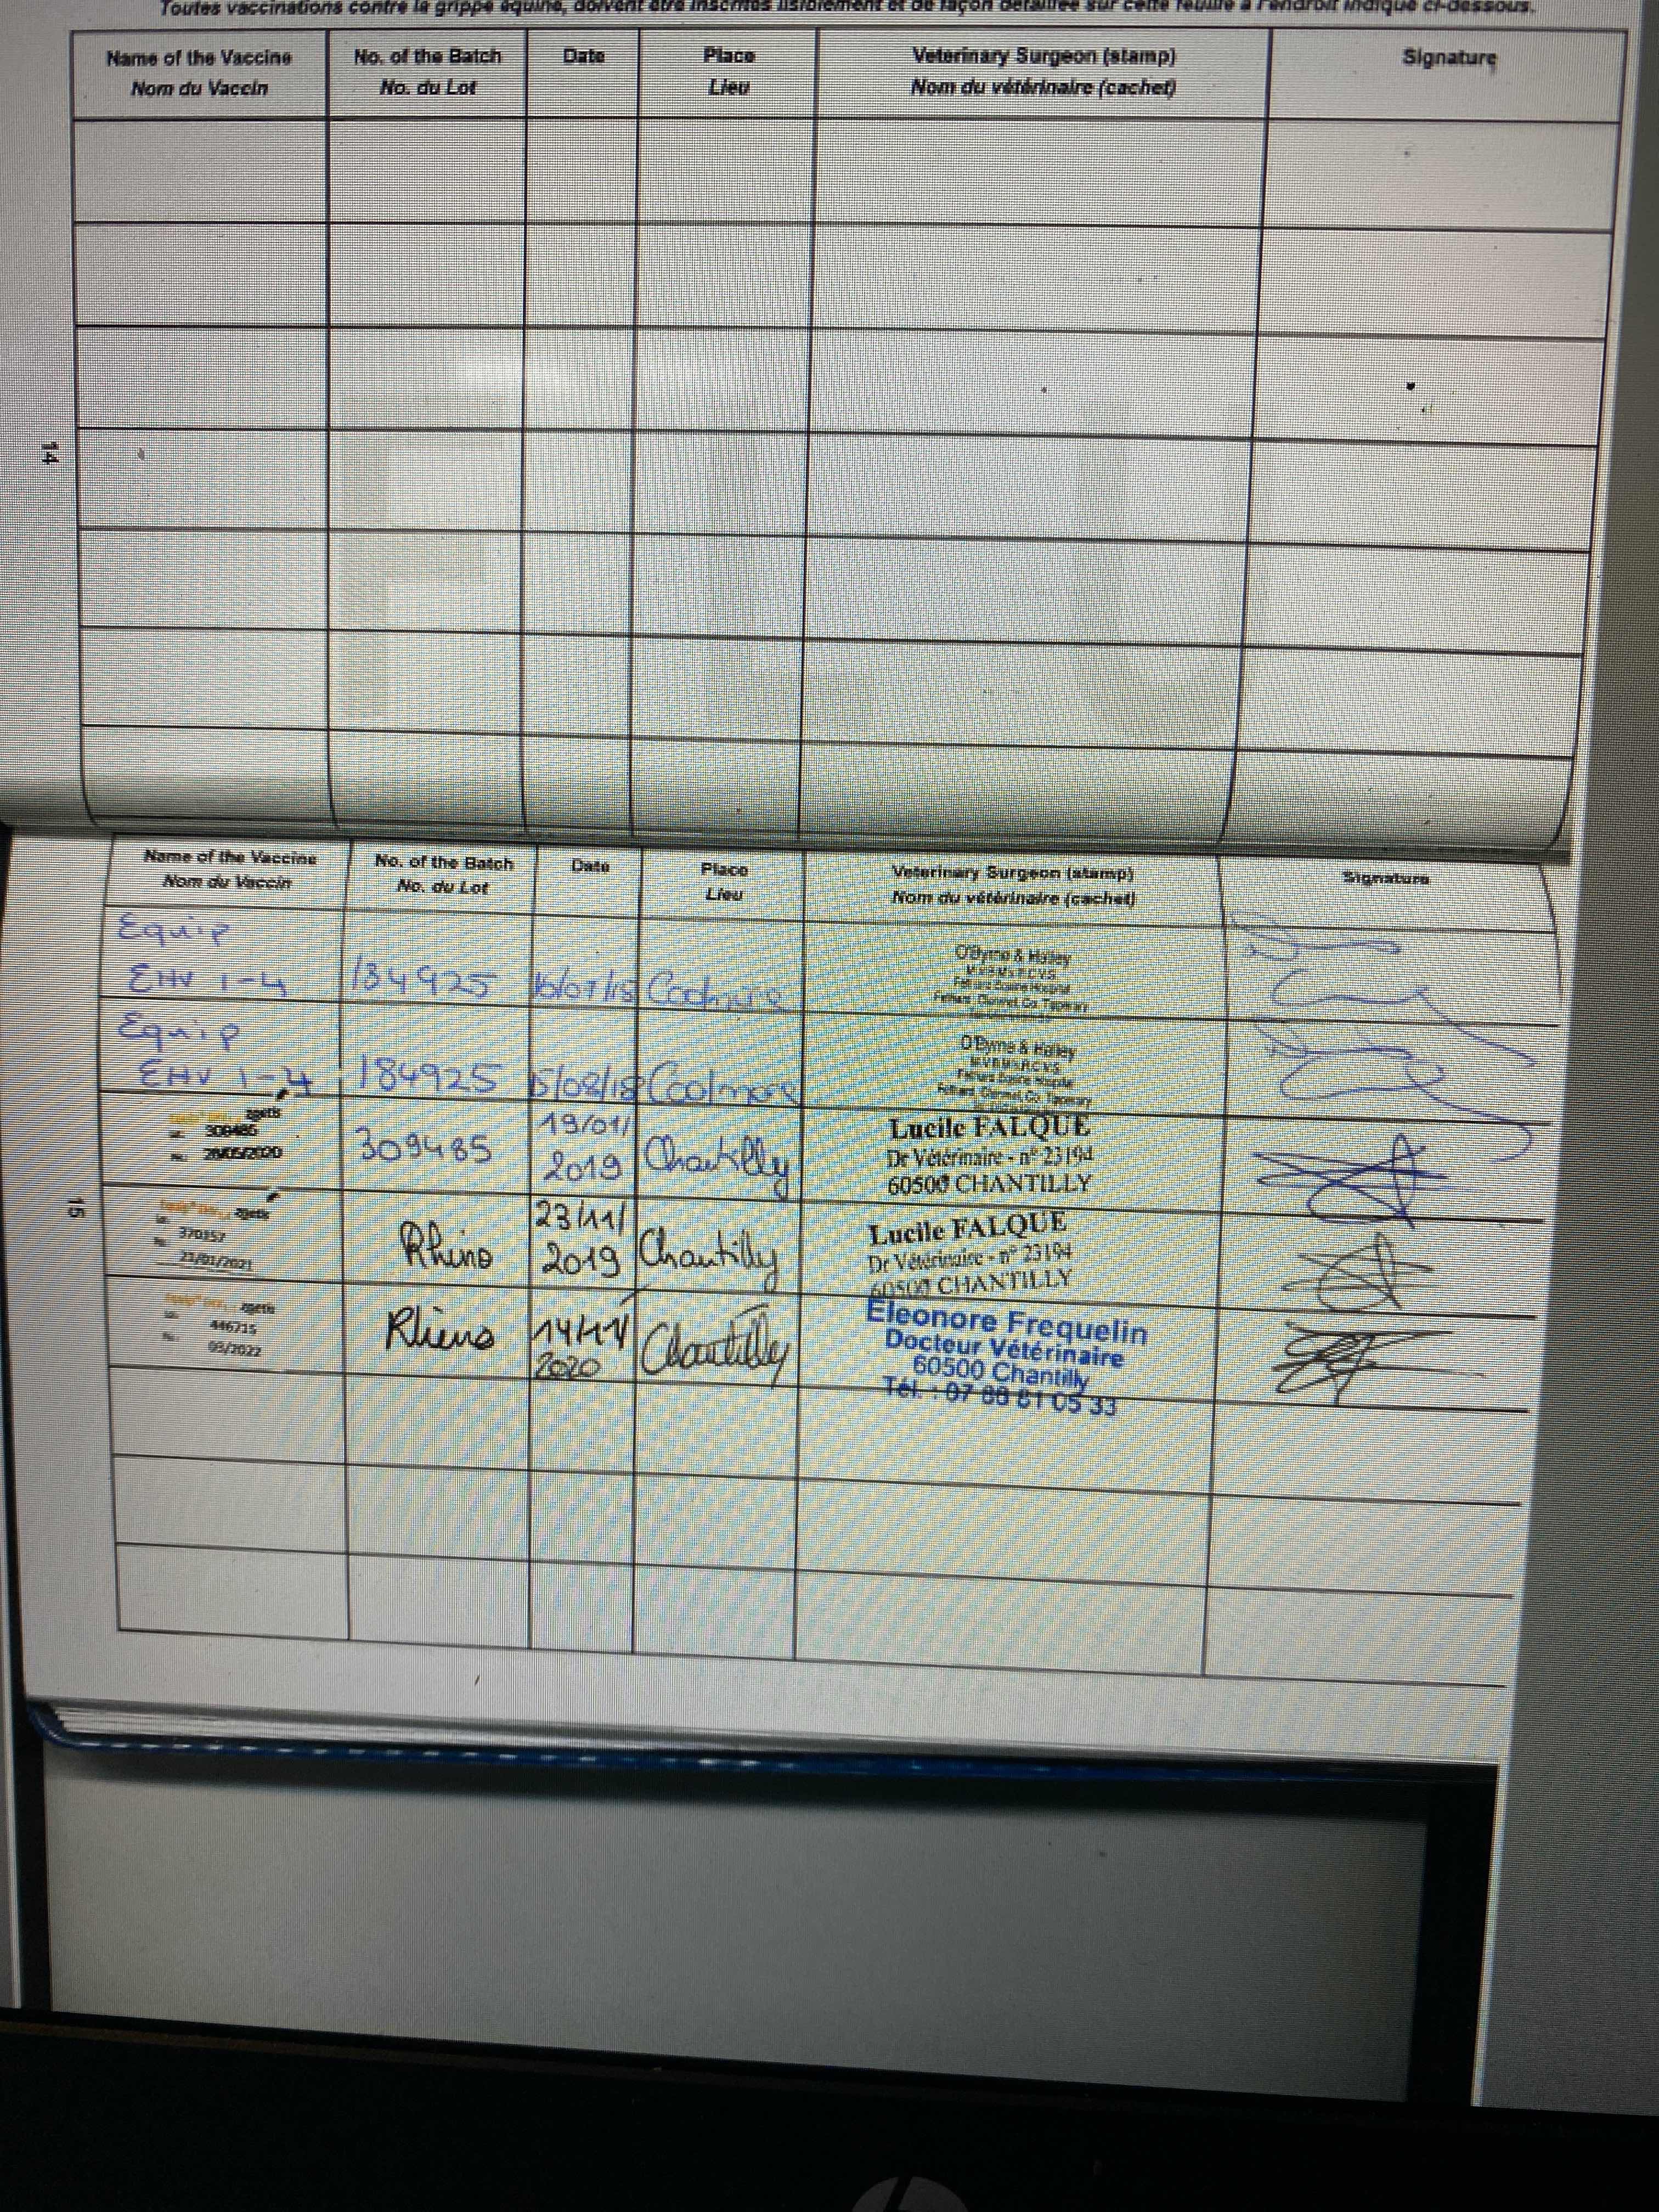 Toutes vaccinations contre la grippe équine, doivent être inscrites lisiblement et de façon détaillée sur cette feuille à l'endroit indiqué ci-dessous.
Name of the Vaccine No. of the Batch Date Place Veterinary Surgeon (stamp) Signature
Nom du Vaccin No. du Lot Lieu Nom du vétérinaire (cachet)
14
Name of the Vaccine No. of the Batch Date Place Veterinary Surgeon (stamp) Signature
Nom du Vaccin No. du Lot Lieu Nom du vétérinaire (cachet)
Equip
EHV 1-4 184925 Coolmore
O'Byrne & Halley
M.V.B. M.R.C.V.S.
Fethard Equine Hospital
Fethard, Clonmel, Co. Tipperary
Equip
EHV 1-4 184925 15/08/18 Coolmore
O'Byrne & Halley
M.V.B. M.R.C.V.S.
Fethard Equine Hospital
Fethard, Clonmel, Co. Tipperary
zoetis
309485
309485 19/01/
2019 Chantilly
Lucile FALQUE
Dr Vétérinaire - n° 23194
60500 CHANTILLY
15
zoetis
370357
21/01/2021
Rhino 23/11/
2019 Chantilly
Lucile FALQUE
Dr Vétérinaire - n° 23194
60500 CHANTILLY
zoetis
446715
03/2022
Rhino 14/11/
2020 Chantilly
Eleonore Frequelin
Docteur Vétérinaire
60500 Chantilly
Tél. : 07 88 81 05 33